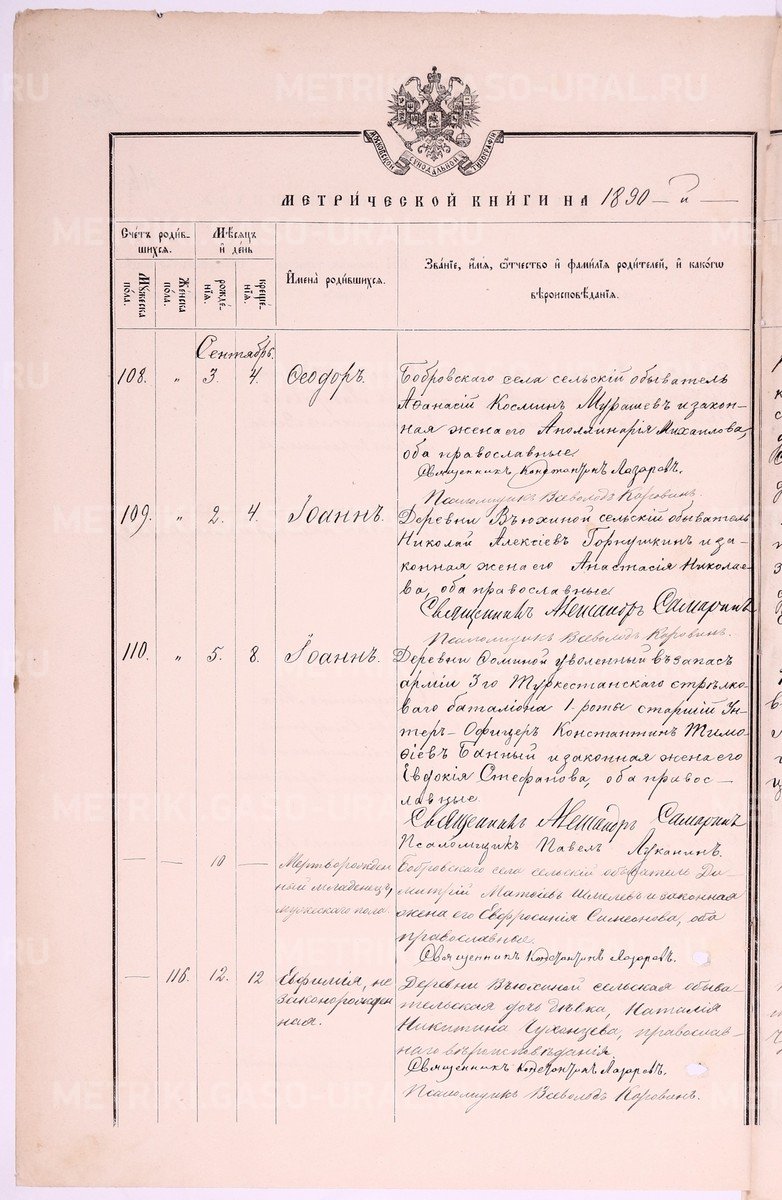 METRIKI.GASO-URAL.RU
МОСКОВСКОЙ СѴНОДАЛЬНОЙ ТѴПОГРАФІИ
МЕТРИ́ЧЕСКОЙ КНИ́ГИ НА 1890 й
Сче́тъ роди́вшихся.
Мѣ́сяцъ и҆ де́нь
И҆мена̀ роди́вшихся.
Зва́нїе, и҆́мя, ѻ҆́тчество и҆ фами́лїѧ роди́телей, и҆ како́гѡ вѣроисповѣ́данїѧ.
Мꙋ́жеска по́ла.
Же́нска по́ла.
рожде́нїѧ.
креще́нїѧ.
Сентябрь.
108. " 3. 4. Ѳеодоръ. Бобровскаго села сельскій обыватель
Аѳанасій Космин Мурашевъ и закон-
ная жена его Аполлинарія Михаилова,
оба православные
Священникъ Константинъ Лазаровъ.
Псаломщикъ Всеволодъ Коровинъ.
109. " 2. 4. Іоаннъ. Деревни Вьюхиной сельскій обыватель
Николай Алексіевъ Горнушкинъ и за-
конная жена его Анастасія Николае-
ва, оба православные
Священникъ Александръ Самаринъ
Псаломщикъ Всеволодъ Коровинъ.
110. " 5. 8. Іоаннъ. Деревни Осминой уволенный въ запасъ
арміи 3го Туркестанскаго стрѣлко
ваго баталіона 1 роты старшій Ун-
теръ-Офицеръ Константинъ Тимо-
ѳіевъ Банный и законная жена его
Евдокія Стефанова, оба правос-
лавные
Священникъ Александръ Самаринъ
Псаломщикъ Павелъ Луканинъ.
— — 10 — Мертворожден Бобровскаго села сельскій обыватель Ди-
ный младенецъ, митрій Матѳіевъ Шмелевъ и законная
мужескаго пола. жена его Евфросинія Симеонова, оба
православные.
Священникъ Константинъ Лазаровъ.
— 116. 12. 12 Евфимія, не Деревни Вьюхиной сельская обыва-
законорожден тельская дочь дѣвка, Наталія
ная. Никитина Чухонцева, православ-
наго вѣроисповѣданія
Священникъ Константинъ Лазаровъ.
Псаломщикъ Всеволодъ Коровинъ.